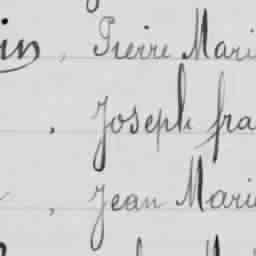 in, Pierre Mari
, Joseph fra
, Jean Marie